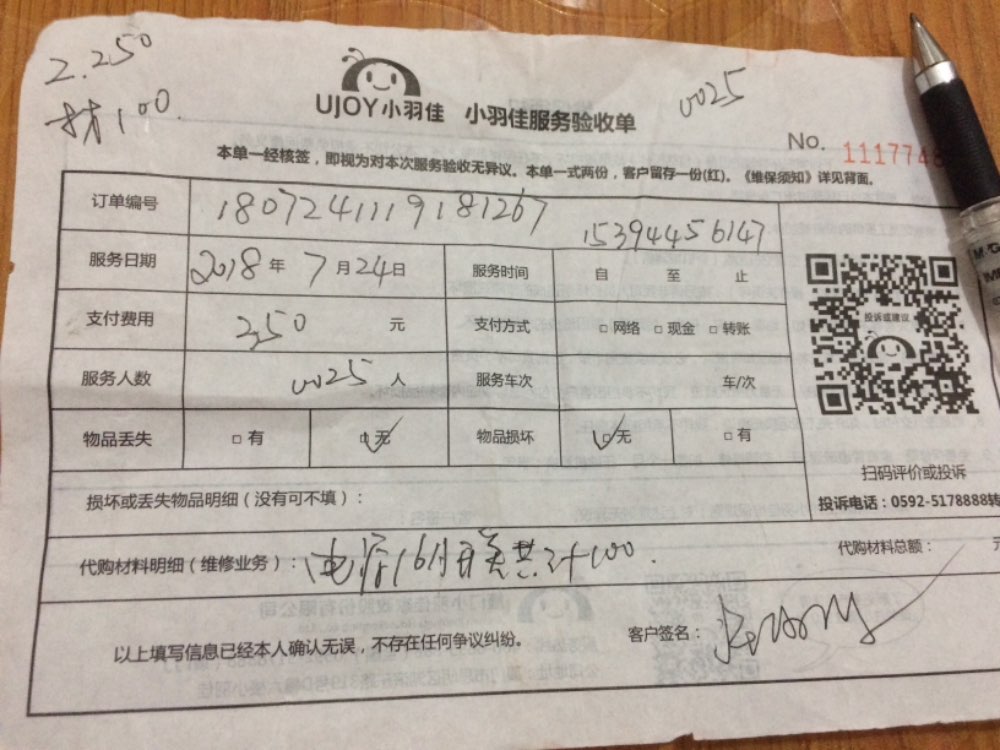 2.250
100.
UJOY小羽佳 小羽佳服务验收单
0025
No. 111774
本单一经核签，即视为对本次服务验收无异议。本单一式两份，客户留存一份(红)。《维保须知》详见背面。
订单编号 1807241119181267 15394456147
服务日期 2018年7月24日 服务时间 自 至 止
支付费用 250 元 支付方式 □网络 □现金 □转账
服务人数 0025 人 服务车次 车/次
物品丢失 □有 □无 物品损坏 □无 □有
投诉或建议
扫码评价或投诉
投诉电话：0592-5178888转
损坏或丢失物品明细（没有可不填）：
代购材料明细（维修业务）： 共计100.
代购材料总额： 元
以上填写信息已经本人确认无误，不存在任何争议纠纷。
客户签名：